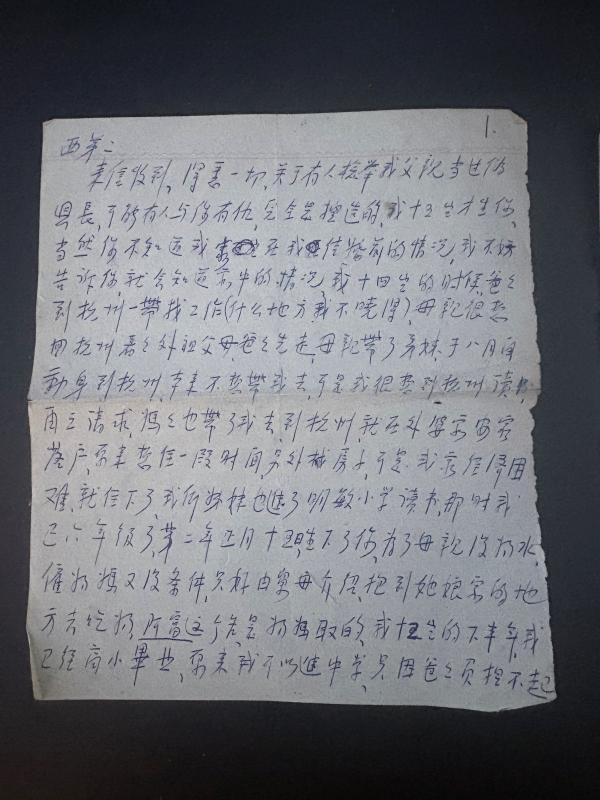 1.
西弟：
来信收到，得悉一切，关于有人检举我父亲当过伪
县長，可能有人与你有仇，完全是捏造的，我十五岁才生你，
当然你不知道我在我结婚前的情况，我不妨
告诉你，就会知道家中的情况，我十四岁的时候，爸爸
到杭州一带找工作（什么地方我不晓得），母親很想
去杭州看看外祖父母，爸爸先走，母親带了弟妹于八月间
動身到杭州，本来不想带我去，可是我很想到杭州读书，
再三请求，妈妈也带了我去，到杭州，就在外婆家安家
落户，原来想住一段时间，另外找房子，可是我家经济困
难，就住下了，我们姊妹也进了明敏小学读书，那时我
已六年级了，第二年正月十五日生下了你，为了母親没奶水，
僱奶妈又没条件，只好由舅母介绍，抱到她娘家的地
方去吃奶，阿富这个名是奶妈取的，我十五岁的下半年，我
已经高小畢业，原来我可以進中学，只因爸爸负担不起